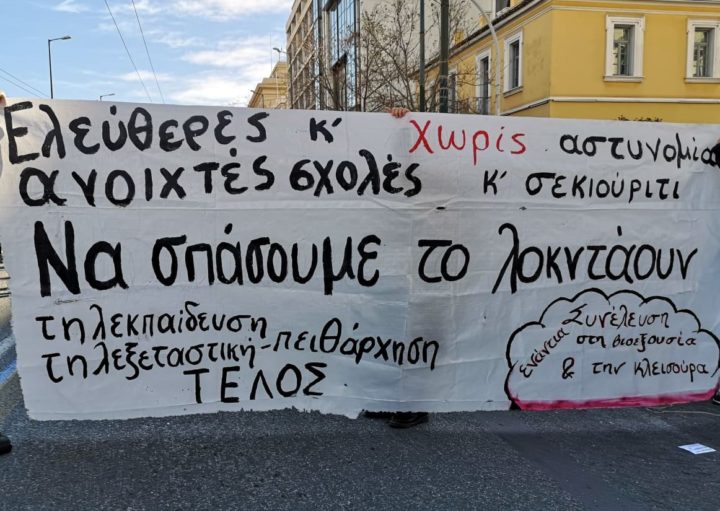 Ελεύθερες κ' χωρίς αστυνομία
ανοιχτές σχολές κ' σεκιούριτι
Να σπάσουμε το λοκντάουν
τηλεκπαίδευση
τηλεξεταστική-πειθάρχηση
ΤΕΛΟΣ
Συνέλευση
ενάντια στη βιοεξουσία
& την κλεισούρα